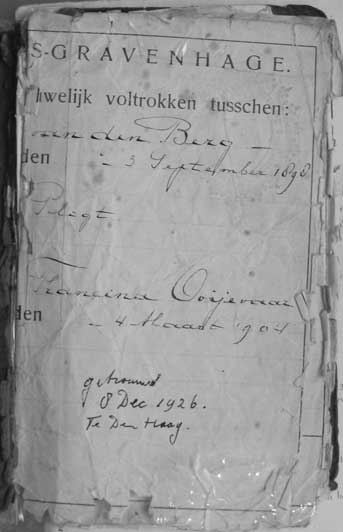 S-GRAVENHAGE.
uwelijk voltrokken tusschen:
van den Berg
den - 3 September 1898
Plegt
Francina Ooijevaar
den - 4 Maart 1904
getrouwd
8 Dec 1926.
Te Den Haag.